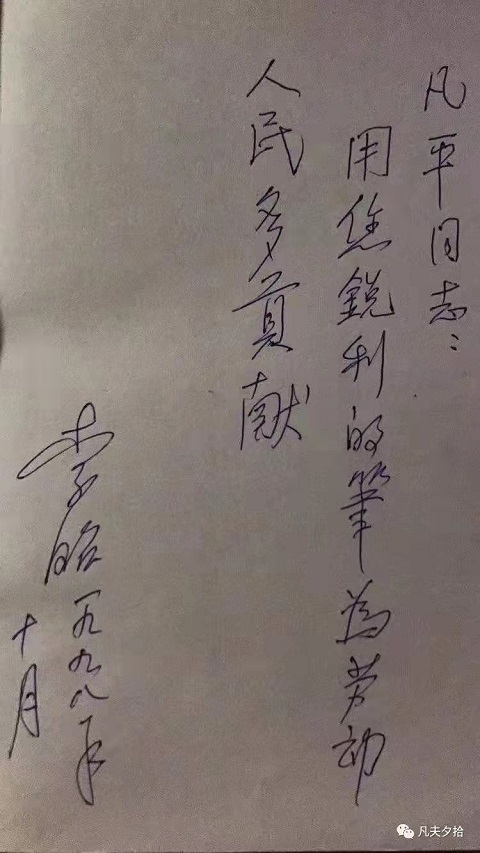 凡平同志：
用您鋭利的筆为劳动
人民多貢献
李昭一九九八年
十月
凡夫夕拾